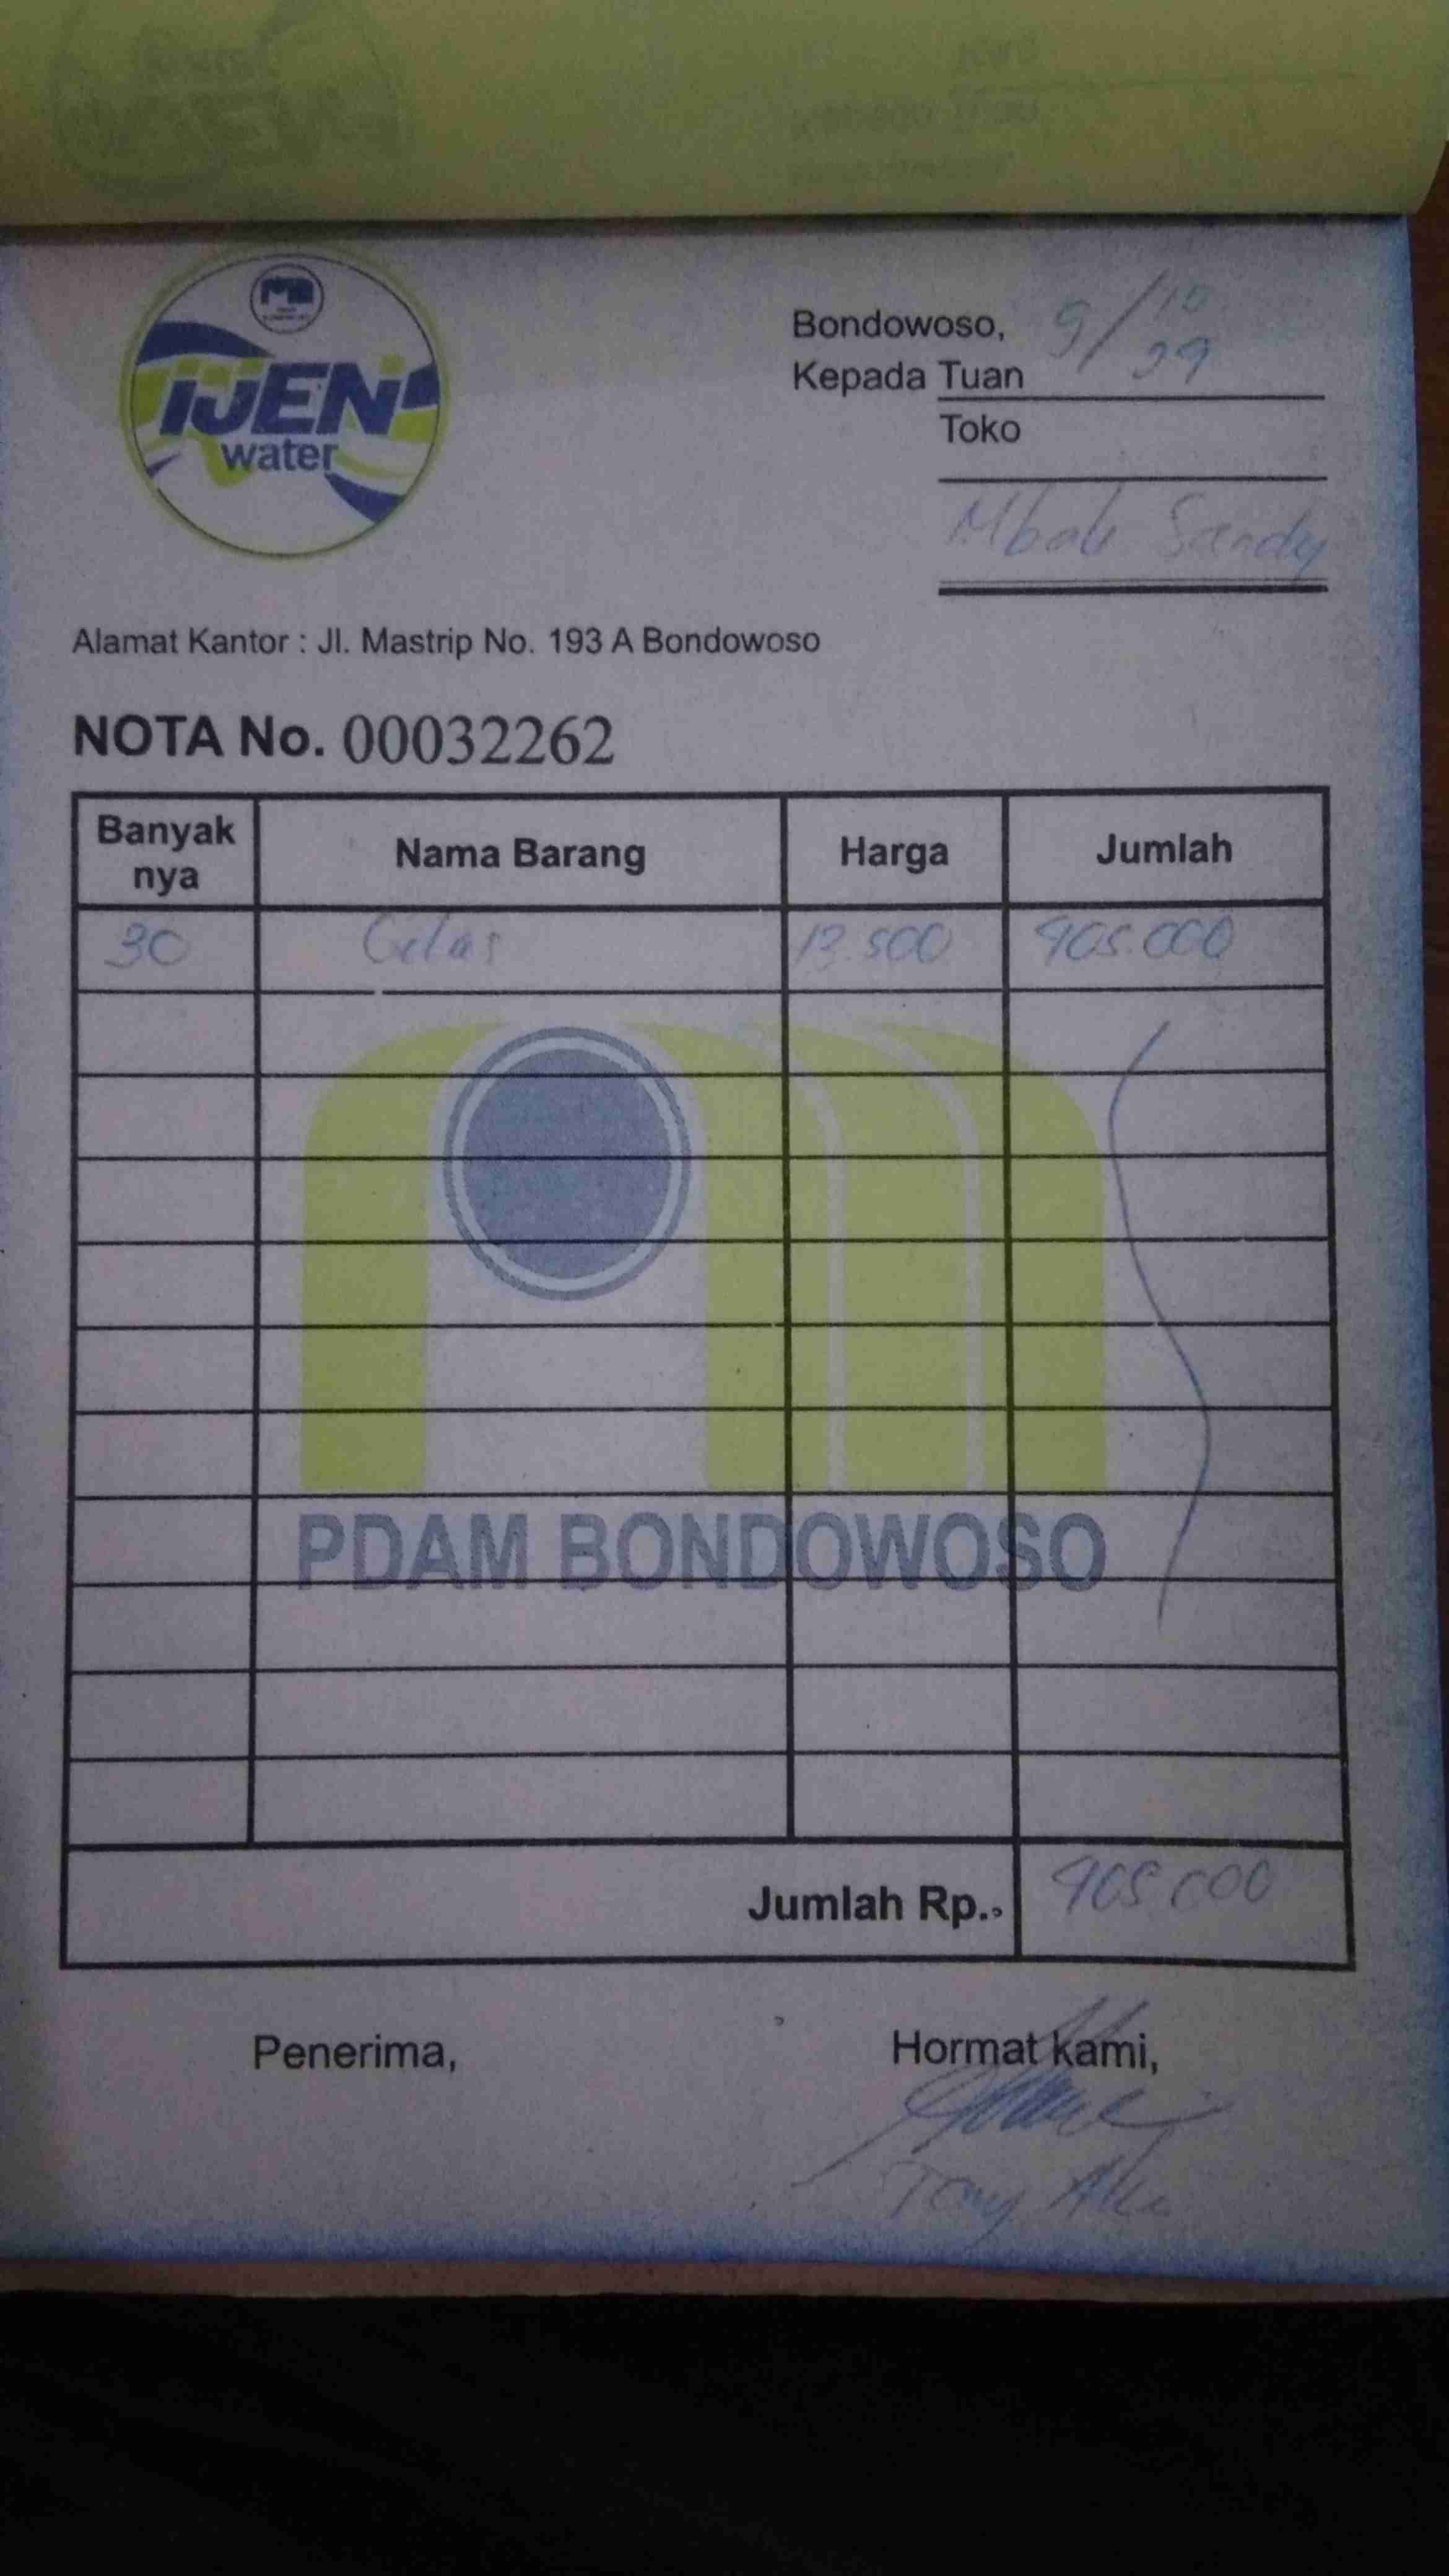 IJEN
water
Bondowoso, 9/10
Kepada Tuan
Toko
Mbak Sandy
Alamat Kantor : Jl. Mastrip No. 193 A Bondowoso
NOTA No. 00032262
Banyak nya Nama Barang Harga Jumlah
30 Gelas 13.500 405.000
PDAM BONDOWOSO
Jumlah Rp. 405.000
Penerima, Hormat kami,
Tony